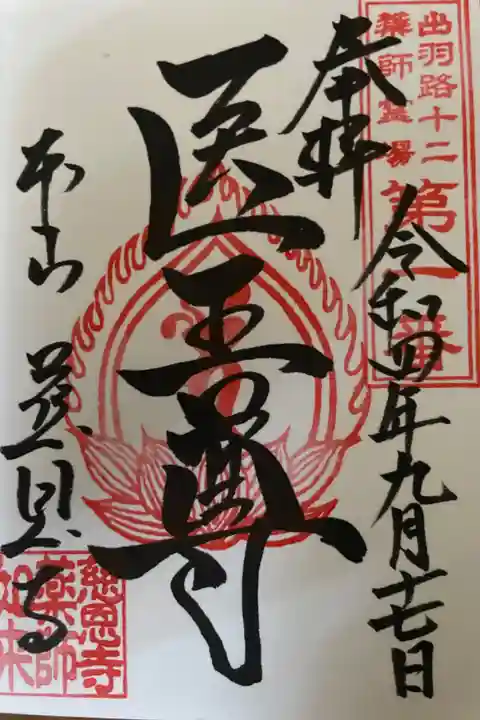 出羽路十二
薬師霊場
第一番
奉拝
令和四年九月十七日
医王尊
本山 慈恩寺
慈恩寺
薬師
如来